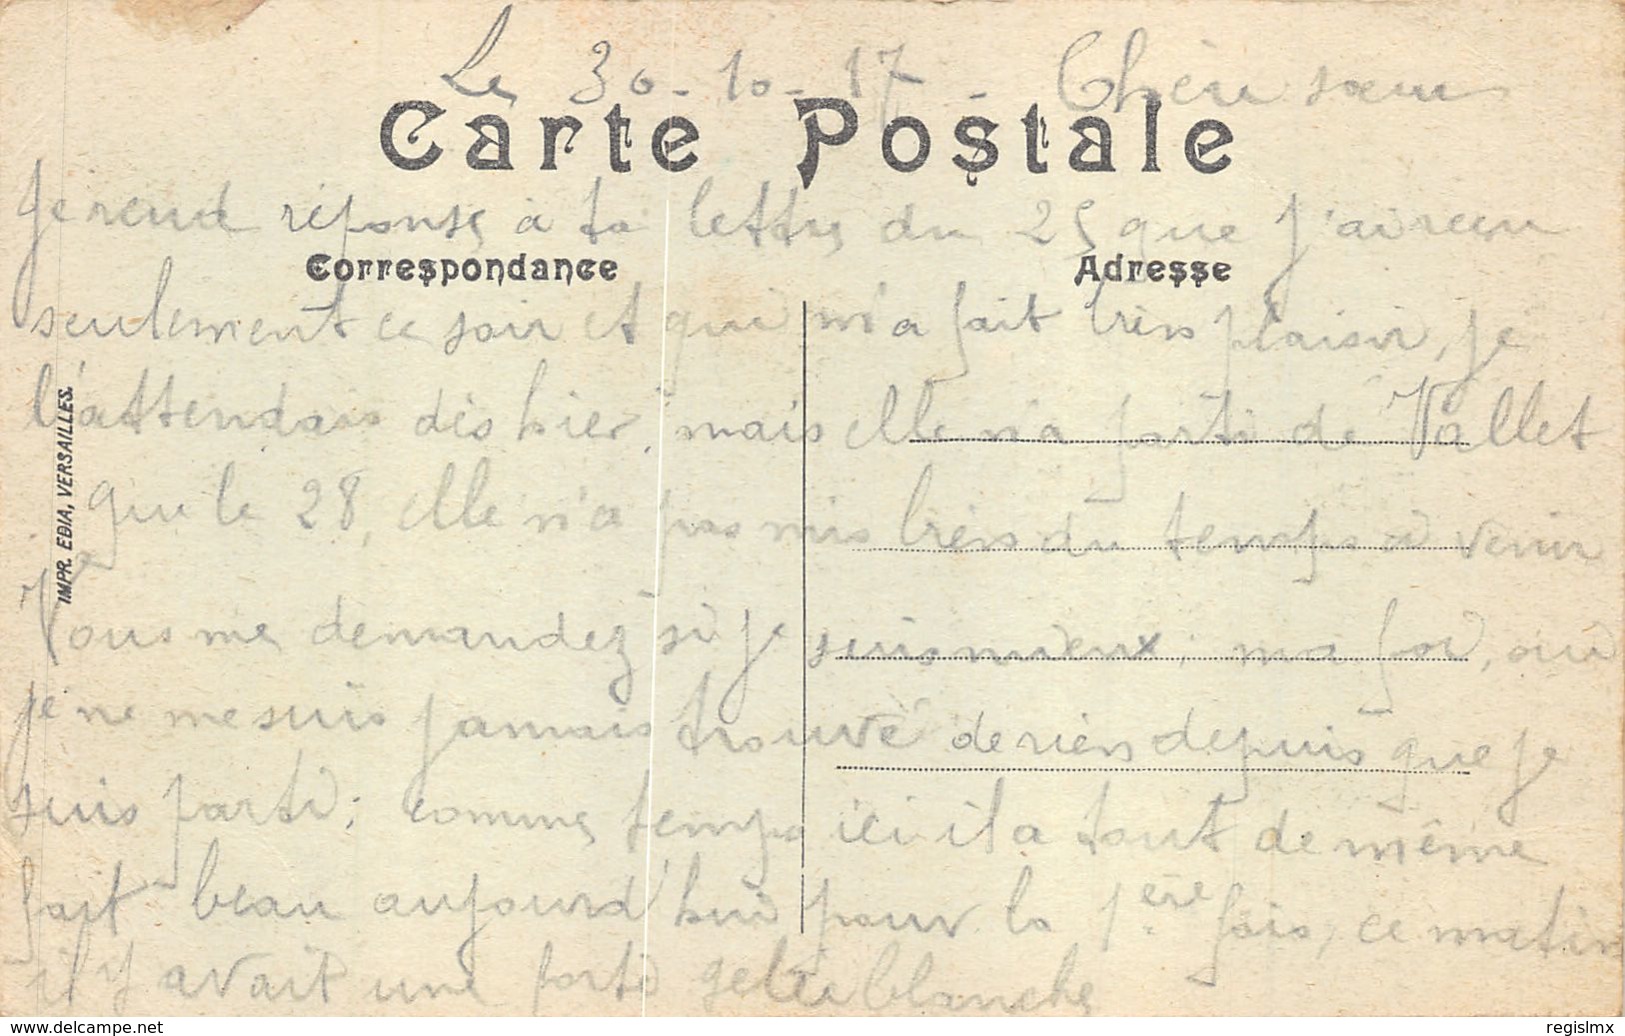 Le 30-10-17 - Chère sœur
Carte Postale
Je rend réponse à ta lettre du 25 que j'ai reçu
Correspondance
Adresse
seulement ce soir et qui m'a fait très plaisir, je
l'attendais dès hier, mais elle n'a parti de Vallet
que le 28, elle n'a pas mis très du temps à venir
Vous me demandez si je suis mieux, ma foi, oui
je ne me suis jamais trouvé de rien depuis que je
suis parti; comme temps ici il a tout de même
fait beau aujourd'hui pour la 1ère fois, ce matin
il y avait une forte gelée blanche
IMPR. EDIA, VERSAILLES.
www.delcampe.net
regislmx